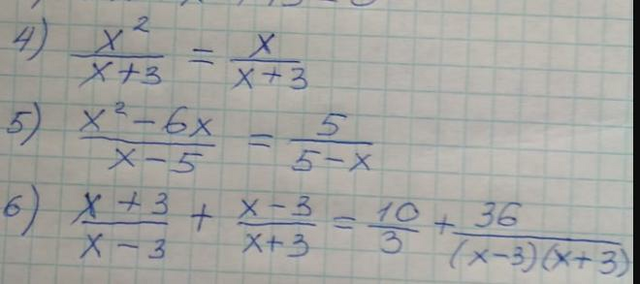 4) x²/(x+3) = x/(x+3)
5) (x²-6x)/(x-5) = 5/(5-x)
6) (x+3)/(x-3) + (x-3)/(x+3) = 10/3 + 36/((x-3)(x+3))